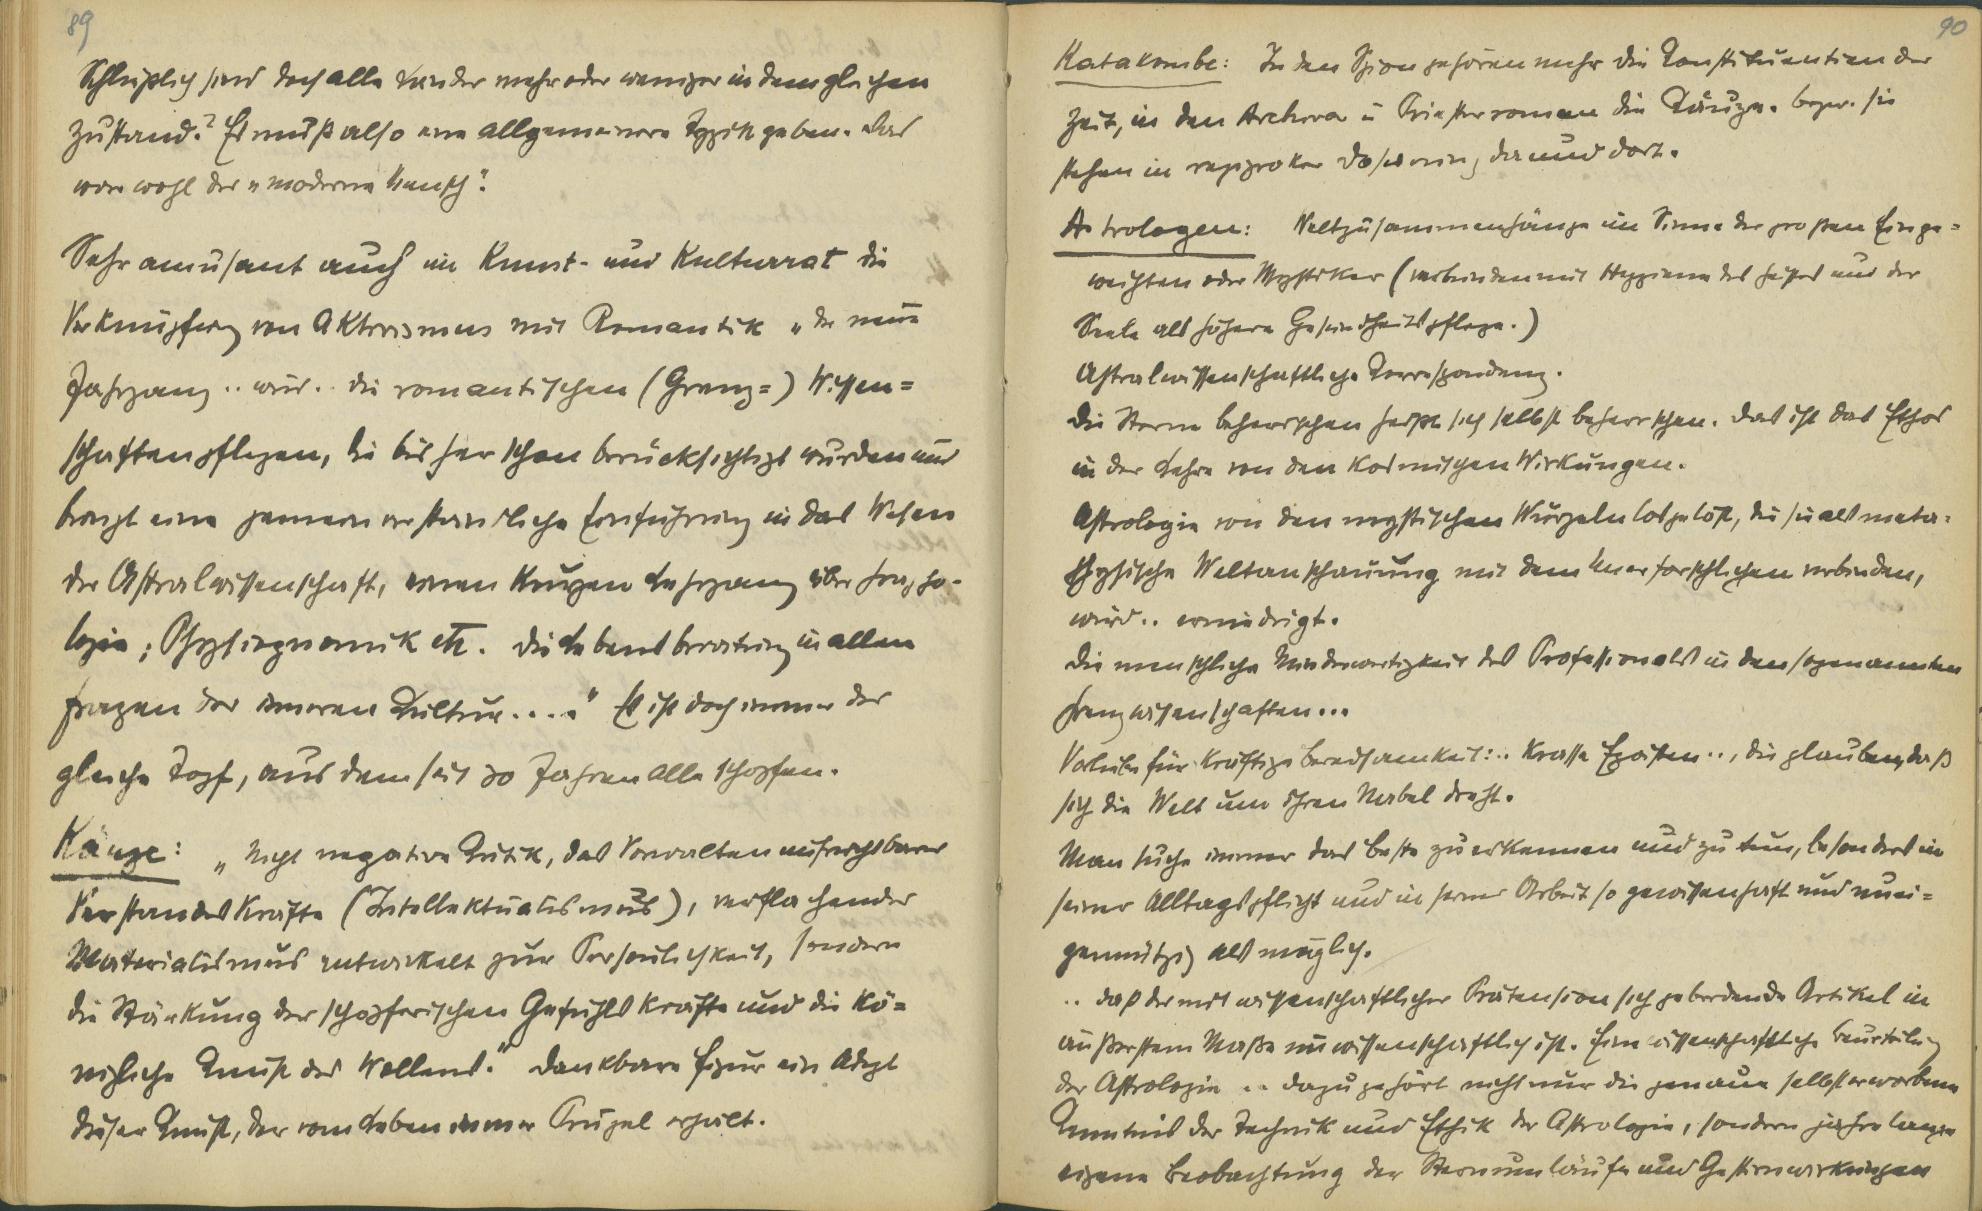 89
Schließlich sind doch alle Länder mehr oder weniger in dem gleichen
Zustand? Es muß also eine allgemeinere Typik geben. Das
wäre wohl der „moderne Mensch".
Sehr amüsant auch im Kunst- und Kulturrat die
Verknüpfung von Aktivismus mit Romantik „der neue
Jahrgang .. wird .. die romantischen (Grenz=) Wissen=
schaften pflegen, die bisher schon berücksichtigt wurden und
bringt eine gemeinverständliche Einführung in das Wesen
der Astralwissenschaft, einen kurzen Lehrgang über Grapho-
logie, Physiognomik etc. Die Lebensberatung in allen
Fragen der inneren Kultur...." Es ist doch immer der
gleiche Topf, aus dem seit 30 Jahren alle schöpfen.
Käuze: „Nicht negative Kritik, das Vorwalten unfruchtbarer
Verstandeskräfte (Intellektualismus), verflachender
Materialismus entwickelt zur Persönlichkeit, sondern
die Stärkung der schöpferischen Gefühlskräfte und die kö=
nigliche Kunst des Wollens." Dankbare Figur ein Adept
dieser Kunst, der vom Leben immer Prügel erhält.
90
Katakombe: In den Spion gehören mehr die Konstituentien der
Zeit, in den Archivar u Priesterroman die Käuze. bezw. sie
stehen in reziproker Dosierung da und dort.
Astrologen: Weltzusammenhänge im Sinne der großen Einge=
weihten oder Mystiker (verbinden mit Hygiene des Geistes und der
Seele als höhere Gesundheitspflege.)
Astralwissenschaftliche Korrespondenz.
Die Sterne beherrschen heißt sich selbst beherrschen. Das ist das Ethos
in der Lehre von den kosmischen Wirkungen.
Astrologie von den mystischen Wurzeln losgelöst, die sie als meta-
physische Weltanschauung mit dem Unerforschlichen verbinden,
wird .. erniedrigt.
Die menschliche Minderwertigkeit des Professionals in den sogenannten
Grenzwissenschaften...
Vorliebe für kräftige Beredsamkeit: .. krasse Egoisten .., die glauben, daß
sich die Welt um ihren Nabel dreht.
Man suche immer das beste zu erkennen und zu tun, besonders in
seiner Alltagspflicht und in seiner Arbeit so gewissenhaft und unei=
gennützig als möglich.
.. daß der mit wissenschaftlicher Prätension sich geberdende Artikel in
äußerstem Maße unwissenschaftlich ist. Eine wissenschaftliche Beurteilung
der Astrologie .. dazu gehört nicht nur die genaue selbsterworbene
Kenntnis der Technik und Ethik der Astrologie, sondern jahrelange
eigene Beobachtung der Sternumläufe und Gestirnwirkungen